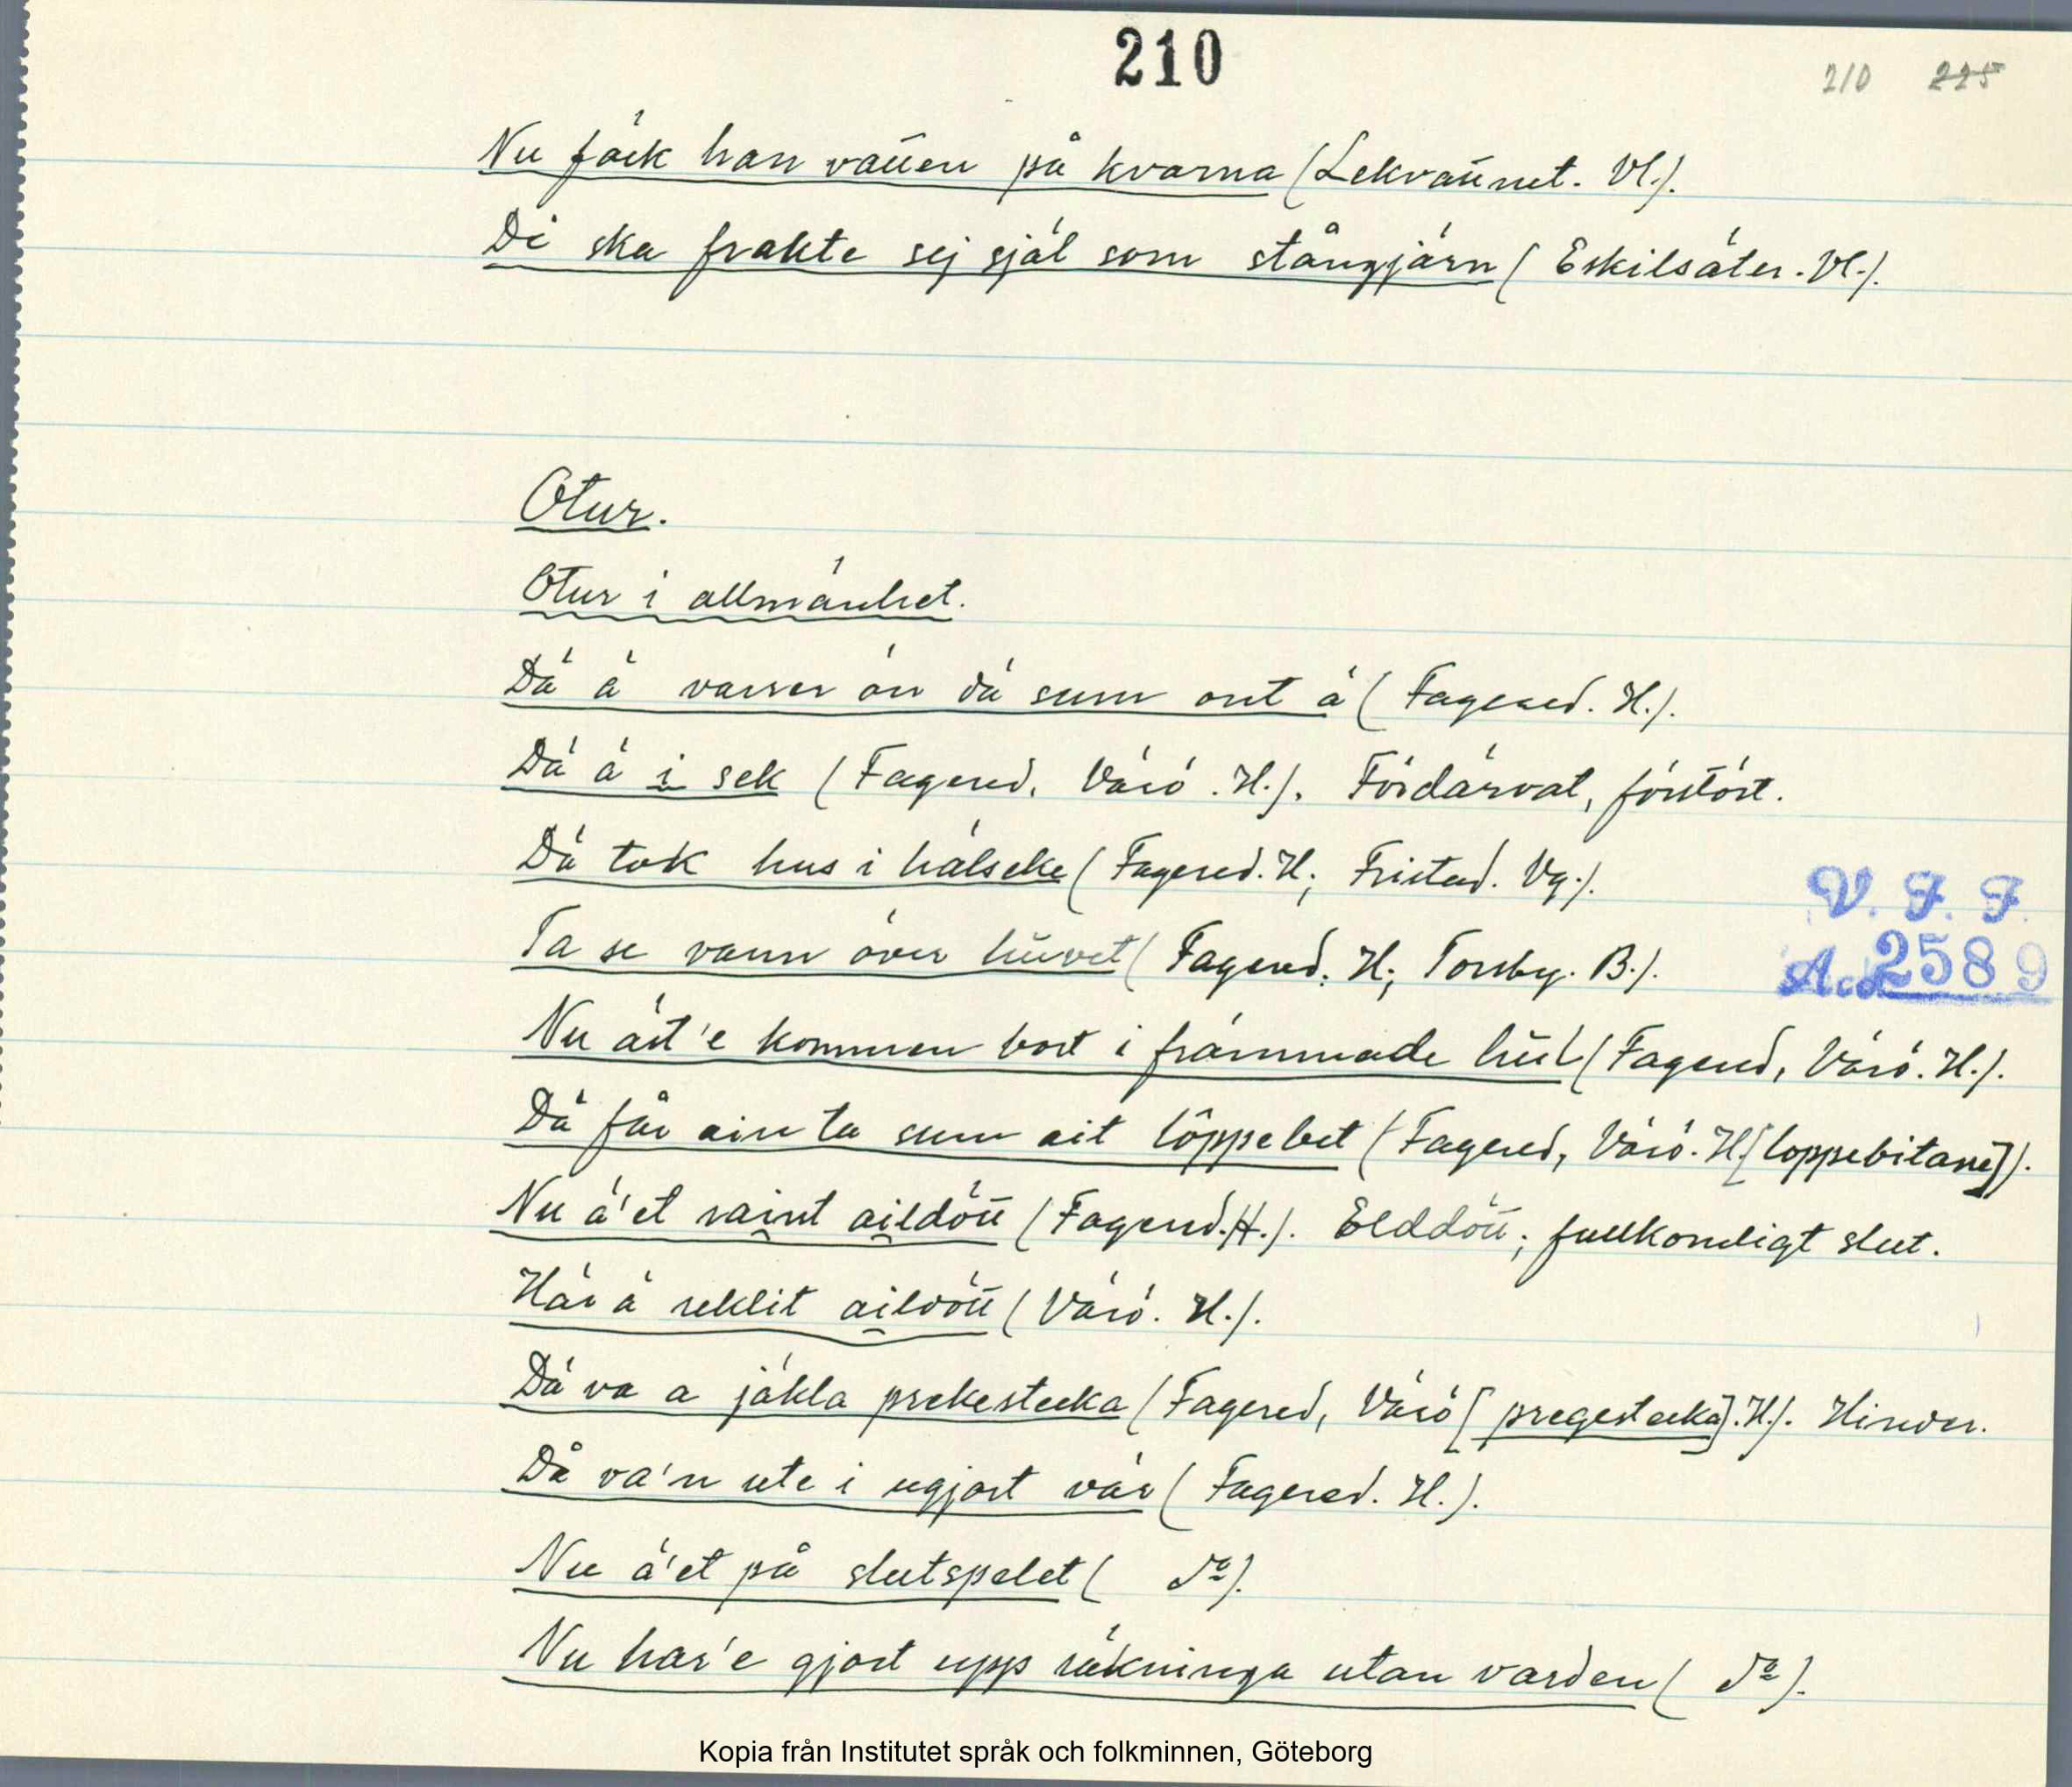 210
210 225
Nu fäck han vatten på kvarna (Lekvattnet. Vl.).
Di ska frakte sej själ som stångjärn (Eskilsäter. Vl.).
Otur.
Otur i allmänhet.
Dä ä varrer än dä sum ont ä (Fagered. H.).
Dä ä i sek (Fagered, Värö. H.). Fördärvat, förstört.
Dä tok hus i hälseke (Fagered. H; Fristad. Vg.).
Ta se vann över huvet (Fagered. H; Torsby. B.).
V. F. F.
Acc. 2589
Nu äst'e kommen bort i främmade hul (Fagered, Värö. H.).
Dä får ain ta sum ait löppebet (Fagered, Värö. H. [loppebitane]).
Nu ä'et raint aildött (Fagered. H.). Elddött; fullkomligt slut.
Här ä reklit aildött (Värö. H.).
Dä va a jäkla prekestecka (Fagered, Värö [pregestecka]. H.). Hinder.
Då va'n ute i ugjort vär (Fagered. H.).
Nu ä'et på slutspelet ( do).
Nu har'e gjort upp räkninga utan varden ( do).
Kopia från Institutet språk och folkminnen, Göteborg